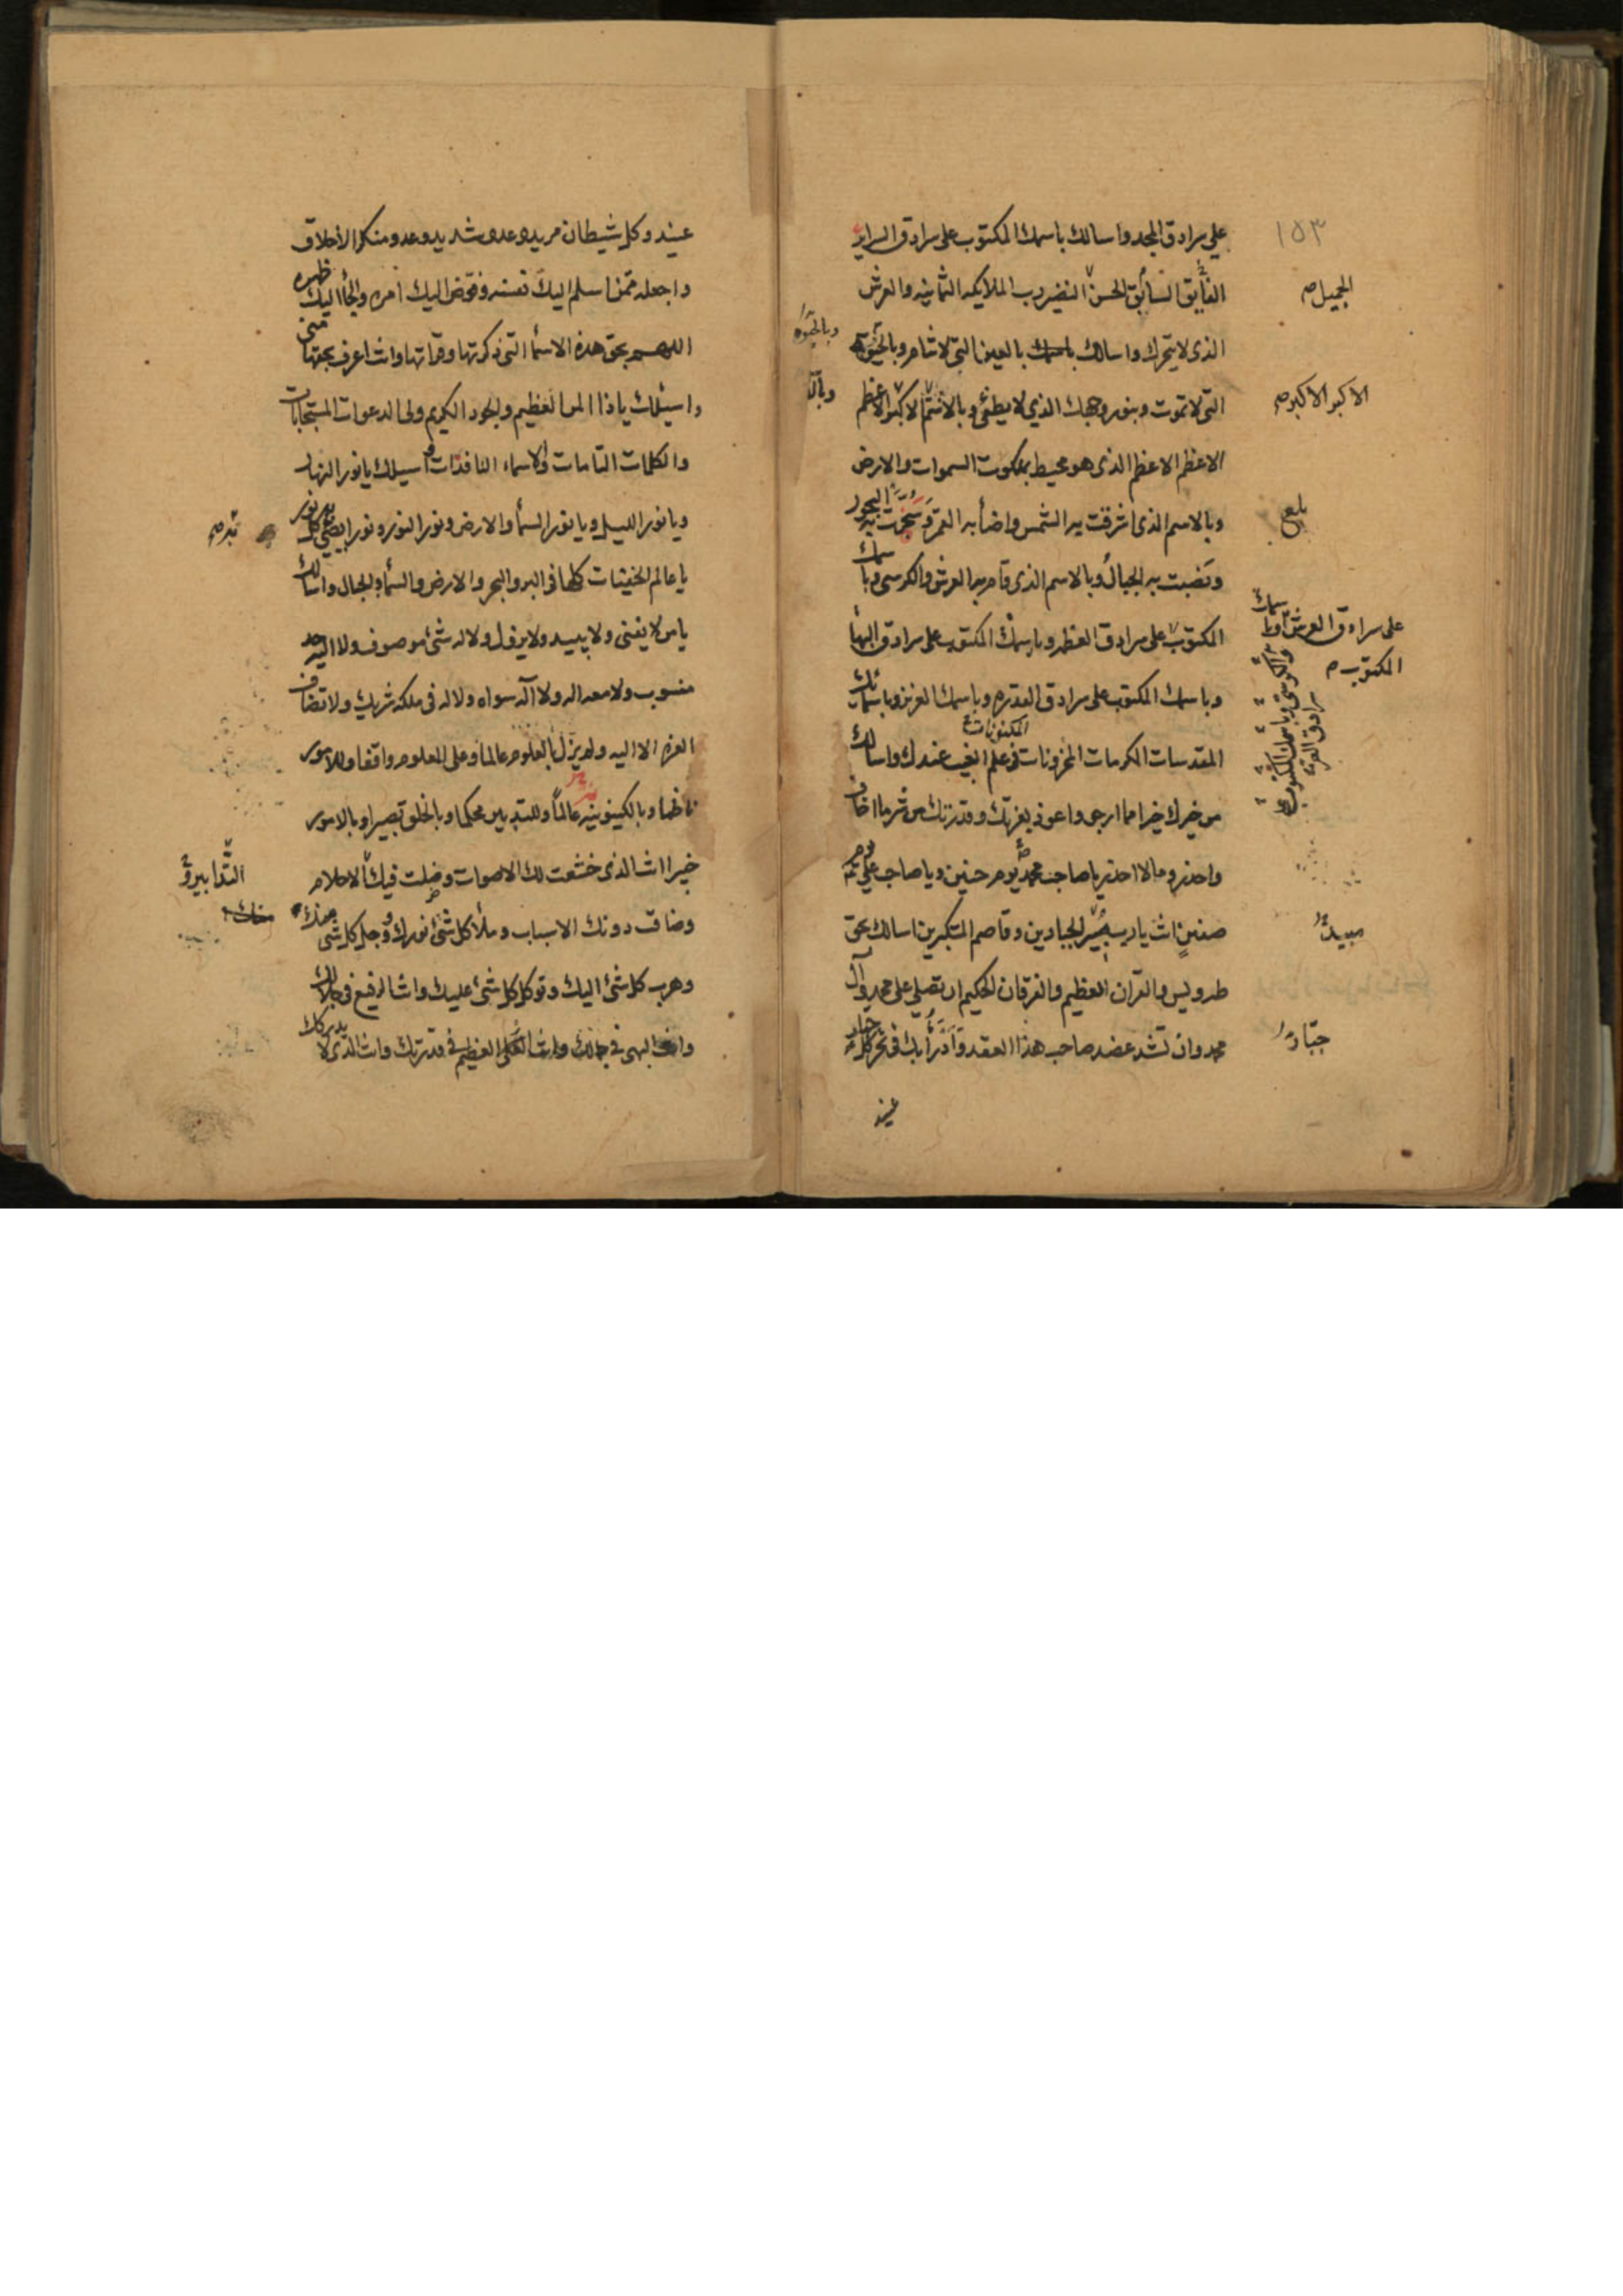 ١٥٣
على سرادق المجد واسالك باسمك المكتوب على سرادق السراير
الفايق السابق الحسن النضير رب الملايكه الثمانيه والعرش
الجميل صح
الذى لا يتحرك واسالك بالعين التى لا تنام وبالحيوة
وبالحيوة
التى لا تموت وبنور وجهك الذى لا يطفئ وبالاسم الاكبر الاعظم
الاكبر الاكبر صح
الاعظم الاعظم الذى هو محيط بملكوت السموات والارض
وبالاسم الذى اشرقت به الشمس واضأ به القمر وسجرت به البحور
بلغ
ونصبت به الجبال وبالاسم الذى قام به العرش والكرسى وباسمك
على سرادق العرش وباسمك
المكتوب
المكتوب على سرادق العظمه وباسمك المكتوب على سرادق البهأ
وباسمك المكتوب على سرادق القدره وباسمك العزيز وباسمائك
المقدسات الكرمات المخزونات فى علم الغيب عندك واسالك
المكنونات
من خيرك خيرا مما ارجو واعوذ بعزتك وقدرتك من شر ما اخاف
واحذر وما لا احذر يا صاحب محمد يوم حنين ويا صاحب على يوم
صفين انت يا رب مبير الجبارين وقاصم المتكبرين اسالك بحق
مبيد
طه ويس والقران العظيم والفرقان الحكيم ان تصلى على محمد وآل
محمد وان تشد عضد صاحب هذا العقد وادرأ بك فى نحر كل جبار
جبار
عنيد
عنيد وكل شيطان مريد وعدو شديد وعدو منكر الاخلاق
واجعله ممن اسلم اليك نفسه وفوض اليك امره والجأ اليك ظهره
اللهم بحق هذه الاسمأ التى ذكرتها وقراتها وانت اعرف بحقها منى
واسئلك يا ذا المن العظيم والجود الكريم ولى الدعوات المستجابات
والكلمات التامات والاسماء النافذات واسيلك يا نور النهار
ويا نور الليل ويا نور السمأ والارض ونور النور ونورا يضئ به كل نور
يا عالم الخفيات كلها فى البر والبحر والارض والسمأ والجبال واسالك
يا من لا يفنى ولا يبيد ولا يزول ولا له شئ موصوف ولا اليه حد
منسوب ولا معه اله ولا اله سواه ولا له فى ملكه شريك ولا تضاف
العزه الا اليه ولم يزل بالعلوم عالما وعلى العلوم واقفا وللامور
ناظما وبالكينونيه عالما وللتدبير محكما وبالخلق بصيرا وبالامور
خبيرا انت الذى خشعت لك الاصوات وضلت فيك الاحلام
وضاقت دونك الاسباب وملأ كل شئ نورك ووجل كل شى منك
وهرب كل شئ اليك وتوكل كل شئ عليك وانت الرفيع فى جلالك
وانت البهى فى جمالك وانت العظيم فى قدرتك وانت الذى لا يدركك